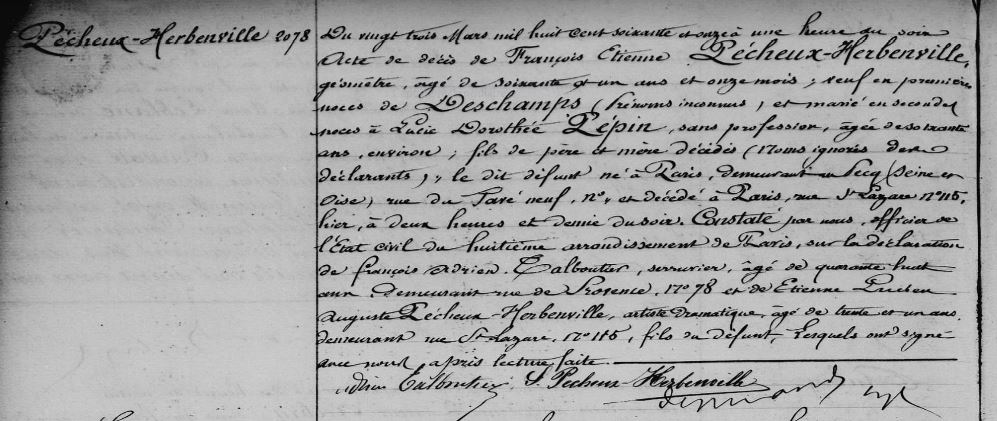 Pécheux-Herbenville 2078
Du vingt trois Mars mil huit cent soixante et onze à une heure du soir
Acte de décès de François Etienne Pécheux-Herbenville,
géomètre, âgé de soixante et un ans et onze mois ; veuf en premières
noces de Deschamps (Prénoms inconnus) et marié en secondes
noces à Lucie Dorothée Pépin, sans profession, âgée de soixante
ans, environ ; fils de père et mère décédés (Noms ignorés des
déclarants) ; le dit défunt né à Paris, demeurant au Pecq (Seine et
Oise) rue du Pavé neuf, n° et décédé à Paris, rue St Lazare n° 115,
hier, à deux heures et demie du soir. Constaté par nous, officier de
l'Etat civil du huitième arrondissement de Paris, sur la déclaration
de françois Adrien Talboutier, serrurier, âgé de quarante huit
ans demeurant rue de Provence, N° 78 et de Etienne Lucien
Auguste Pécheux-Herbenville, artiste dramatique, âgé de trente et un ans
demeurant rue St Lazare, N° 115, fils du défunt, Lesquels ont signé
avec nous après lecture faite.
Pecheux-Herbenville